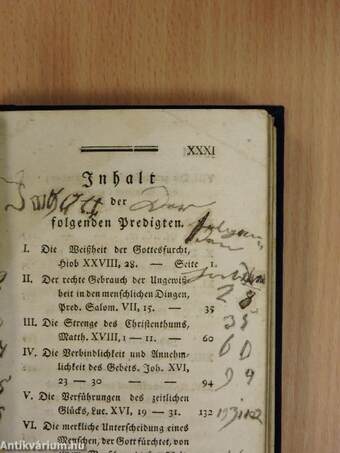 XXXI
Inhalt
der
folgenden Predigten.
I. Die Weißheit der Gottesfurcht,
Hiob XXVIII, 28. — Seite 1.
II. Der rechte Gebrauch der Ungewiß-
heit in den menschlichen Dingen,
Pred. Salom. VII, 15. — 35
III. Die Strenge des Christenthums,
Matth. XVIII, 1 — 11. — 60
IV. Die Verbindlichkeit und Annehm-
lichkeit des Gebets. Joh. XVI,
23 — 30 — — 94
V. Die Verführungen des zeitlichen
Glücks, Luc. XVI, 19 — 31. 132
VI. Die merkliche Unterscheidung eines
Menschen, der Gott fürchtet, von
28
35
60
94
Antikvárium.hu